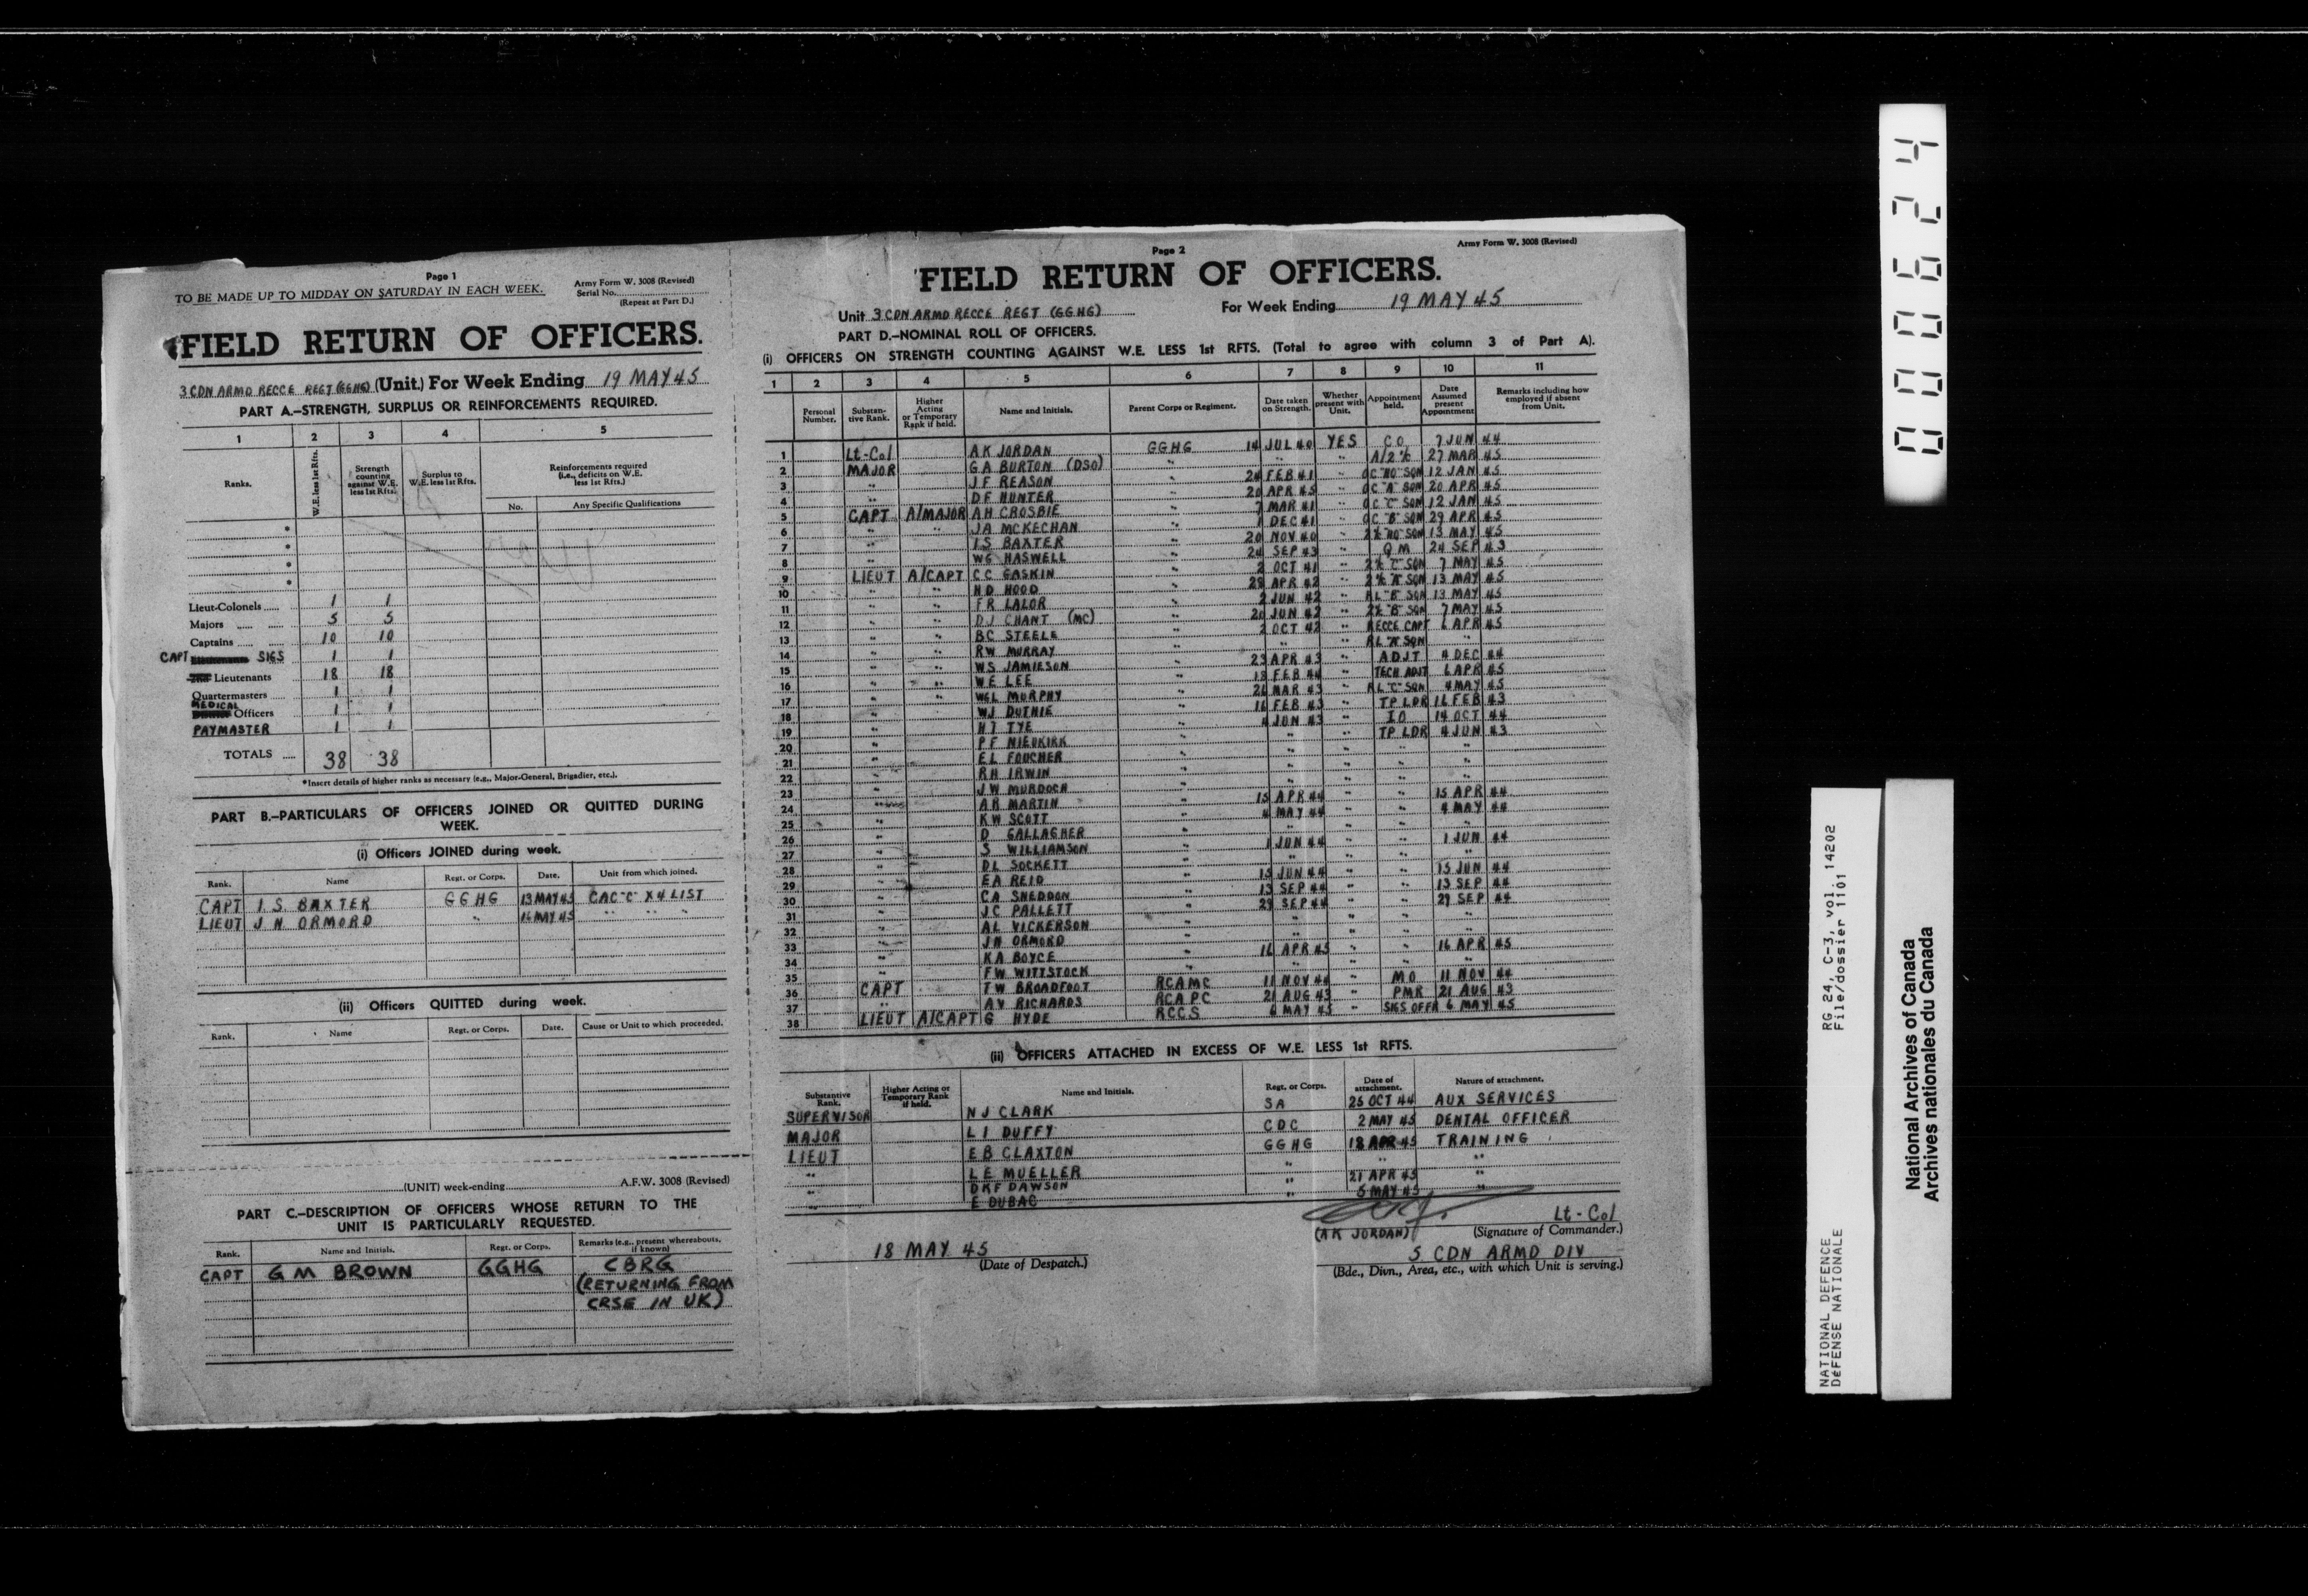 Page 1
TO BE MADE UP TO MIDDAY ON SATURDAY IN EACH WEEK.
Army Form W. 3008 (Revised)
Serial No.
(Repeat at Part D.)
FIELD RETURN OF OFFICERS.
3 CDN ARMD RECCE REGT (GGHG) (Unit.) For Week Ending 19 MAY 45
PART A.—STRENGTH, SURPLUS OR REINFORCEMENTS REQUIRED.
1 2 3 4 5
Ranks. W.E. less 1st Rfts. Strength counting against W.E. less 1st Rfts. Surplus to W.E. less 1st Rfts. Reinforcements required (i.e., deficits on W.E. less 1st Rfts.)
No. Any Specific Qualifications
*
*
*
*
Lieut-Colonels 1 1
Majors 5 5
Captains 10 10
CAPT SIGS 1 1
Lieutenants 18 18
Quartermasters 1 1
MEDICAL Officers 1 1
PAYMASTER 1 1
TOTALS 38 38
*Insert details of higher ranks as necessary (e.g., Major-General, Brigadier, etc.).
PART B.—PARTICULARS OF OFFICERS JOINED OR QUITTED DURING WEEK.
(i) Officers JOINED during week.
Rank. Name Regt. or Corps. Date. Unit from which joined.
CAPT I. S. BAXTER GGHG 13 MAY 45 CAC "C" X4 LIST
LIEUT J. N. ORMORD " 16 MAY 45 " " "
(ii) Officers QUITTED during week.
Rank. Name Regt. or Corps. Date. Cause or Unit to which proceeded.
(UNIT) week-ending A.F.W. 3008 (Revised)
PART C.—DESCRIPTION OF OFFICERS WHOSE RETURN TO THE UNIT IS PARTICULARLY REQUESTED.
Rank. Name and Initials. Regt. or Corps. Remarks (e.g., present whereabouts, if known)
CAPT G M BROWN GGHG CBRG
(RETURNING FROM
CRSE IN UK)
Page 2
Army Form W. 3008 (Revised)
FIELD RETURN OF OFFICERS.
Unit 3 CDN ARMD RECCE REGT (GGHG) For Week Ending 19 MAY 45
PART D.—NOMINAL ROLL OF OFFICERS.
(i) OFFICERS ON STRENGTH COUNTING AGAINST W.E. LESS 1st RFTS. (Total to agree with column 3 of Part A).
1 2 3 4 5 6 7 8 9 10 11
Personal Number. Substantive Rank. Higher Acting or Temporary Rank if held. Name and Initials. Parent Corps or Regiment. Date taken on Strength. Whether present with Unit. Appointment held. Date Assumed present Appointment Remarks including how employed if absent from Unit.
1 Lt-Col A K JORDAN GGHG 14 JUL 40 YES CO 7 JUN 44
2 MAJOR G A BURTON (DSO) " " " A/2 i/c 27 MAR 45
3 " J F REASON " 24 FEB 41 " OC "HQ" SQN 12 JAN 45
4 " D F HUNTER " 20 APR 45 " OC "A" SQN 20 APR 45
5 CAPT A/MAJOR A H CROSBIE " 7 MAR 41 " OC "C" SQN 12 JAN 45
6 " " J A MCKECHAN " 1 DEC 41 " OC "B" SQN 29 APR 45
7 " I S BAXTER " 20 NOV 40 " 2 i/c "HQ" SQN 13 MAY 45
8 " W G HASWELL " 24 SEP 43 " QM 24 SEP 43
9 LIEUT A/CAPT C C GASKIN " 2 OCT 41 " 2 i/c "C" SQN 7 MAY 45
10 " " H D HOOD " 28 APR 42 " 2 i/c "A" SQN 13 MAY 45
11 " " F R LALOR " 2 JUN 42 " RL "B" SQN 13 MAY 45
12 " " D J CHANT (MC) " 20 JUN 42 " 2 i/c "B" SQN 7 MAY 45
13 " " B C STEELE " 2 OCT 42 " RECCE CAPT 6 APR 45
14 " " R W MURRAY " " " RL "A" SQN "
15 " " W S JAMIESON " 23 APR 43 " ADJT 4 DEC 44
16 " " W E LEE " 18 FEB 44 " TECH ADJT 6 APR 45
17 " " W G L MURPHY " 26 MAR 43 " RL "C" SQN 4 MAY 45
18 " W J DUTHIE " 16 FEB 43 " TP LDR 16 FEB 43
19 " H J TYE " 4 JUN 43 " IO 14 OCT 44
20 " P F NIEUKIRK " " " TP LDR 4 JUN 43
21 " E L FOUCHER " " " " "
22 " R H IRWIN " " " " "
23 " J W MURDOCH " " " " "
24 " A R MARTIN " 15 APR 44 " " 15 APR 44
25 " K W SCOTT " 4 MAY 44 " " 4 MAY 44
26 " D GALLAGHER " " " " "
27 " S WILLIAMSON " 1 JUN 44 " " 1 JUN 44
28 " D L SOCKETT " " " " "
29 " E A REID " 15 JUN 44 " " 15 JUN 44
30 " C A SNEDDON " 13 SEP 44 " " 13 SEP 44
31 " J C PALLETT " 29 SEP 44 " " 29 SEP 44
32 " A L VICKERSON " " " " "
33 " J N ORMORD " " " " "
34 " K A BOYCE " 16 APR 45 " " 16 APR 45
35 " F W WITTSTOCK " " " " "
36 CAPT T W BROADFOOT RCAMC 11 NOV 44 " MO 11 NOV 44
37 " A V RICHARDS RCAPC 21 AUG 43 " PMR 21 AUG 43
38 LIEUT A/CAPT G HYDE RCCS 6 MAY 45 " SIGS OFFR 6 MAY 45
(ii) OFFICERS ATTACHED IN EXCESS OF W.E. LESS 1st RFTS.
Substantive Rank. Higher Acting or Temporary Rank if held. Name and Initials. Regt. or Corps. Date of attachment. Nature of attachment.
SUPERVISOR N J CLARK SA 25 OCT 44 AUX SERVICES
MAJOR L I DUFFY CDC 2 MAY 45 DENTAL OFFICER
LIEUT E B CLAXTON GGHG 18 APR 45 TRAINING
" L E MUELLER " " "
" D K F DAWSON " 21 APR 45 "
" E DUBAC " 5 MAY 45 "
Lt-Col
(A K JORDAN) (Signature of Commander.)
18 MAY 45
(Date of Despatch.)
5 CDN ARMD DIV
(Bde., Divn., Area, etc., with which Unit is serving.)
000624
RG 24, C-3, vol. 14202
File/dossier 1101
NATIONAL DEFENCE
DÉFENSE NATIONALE
National Archives of Canada
Archives nationales du Canada